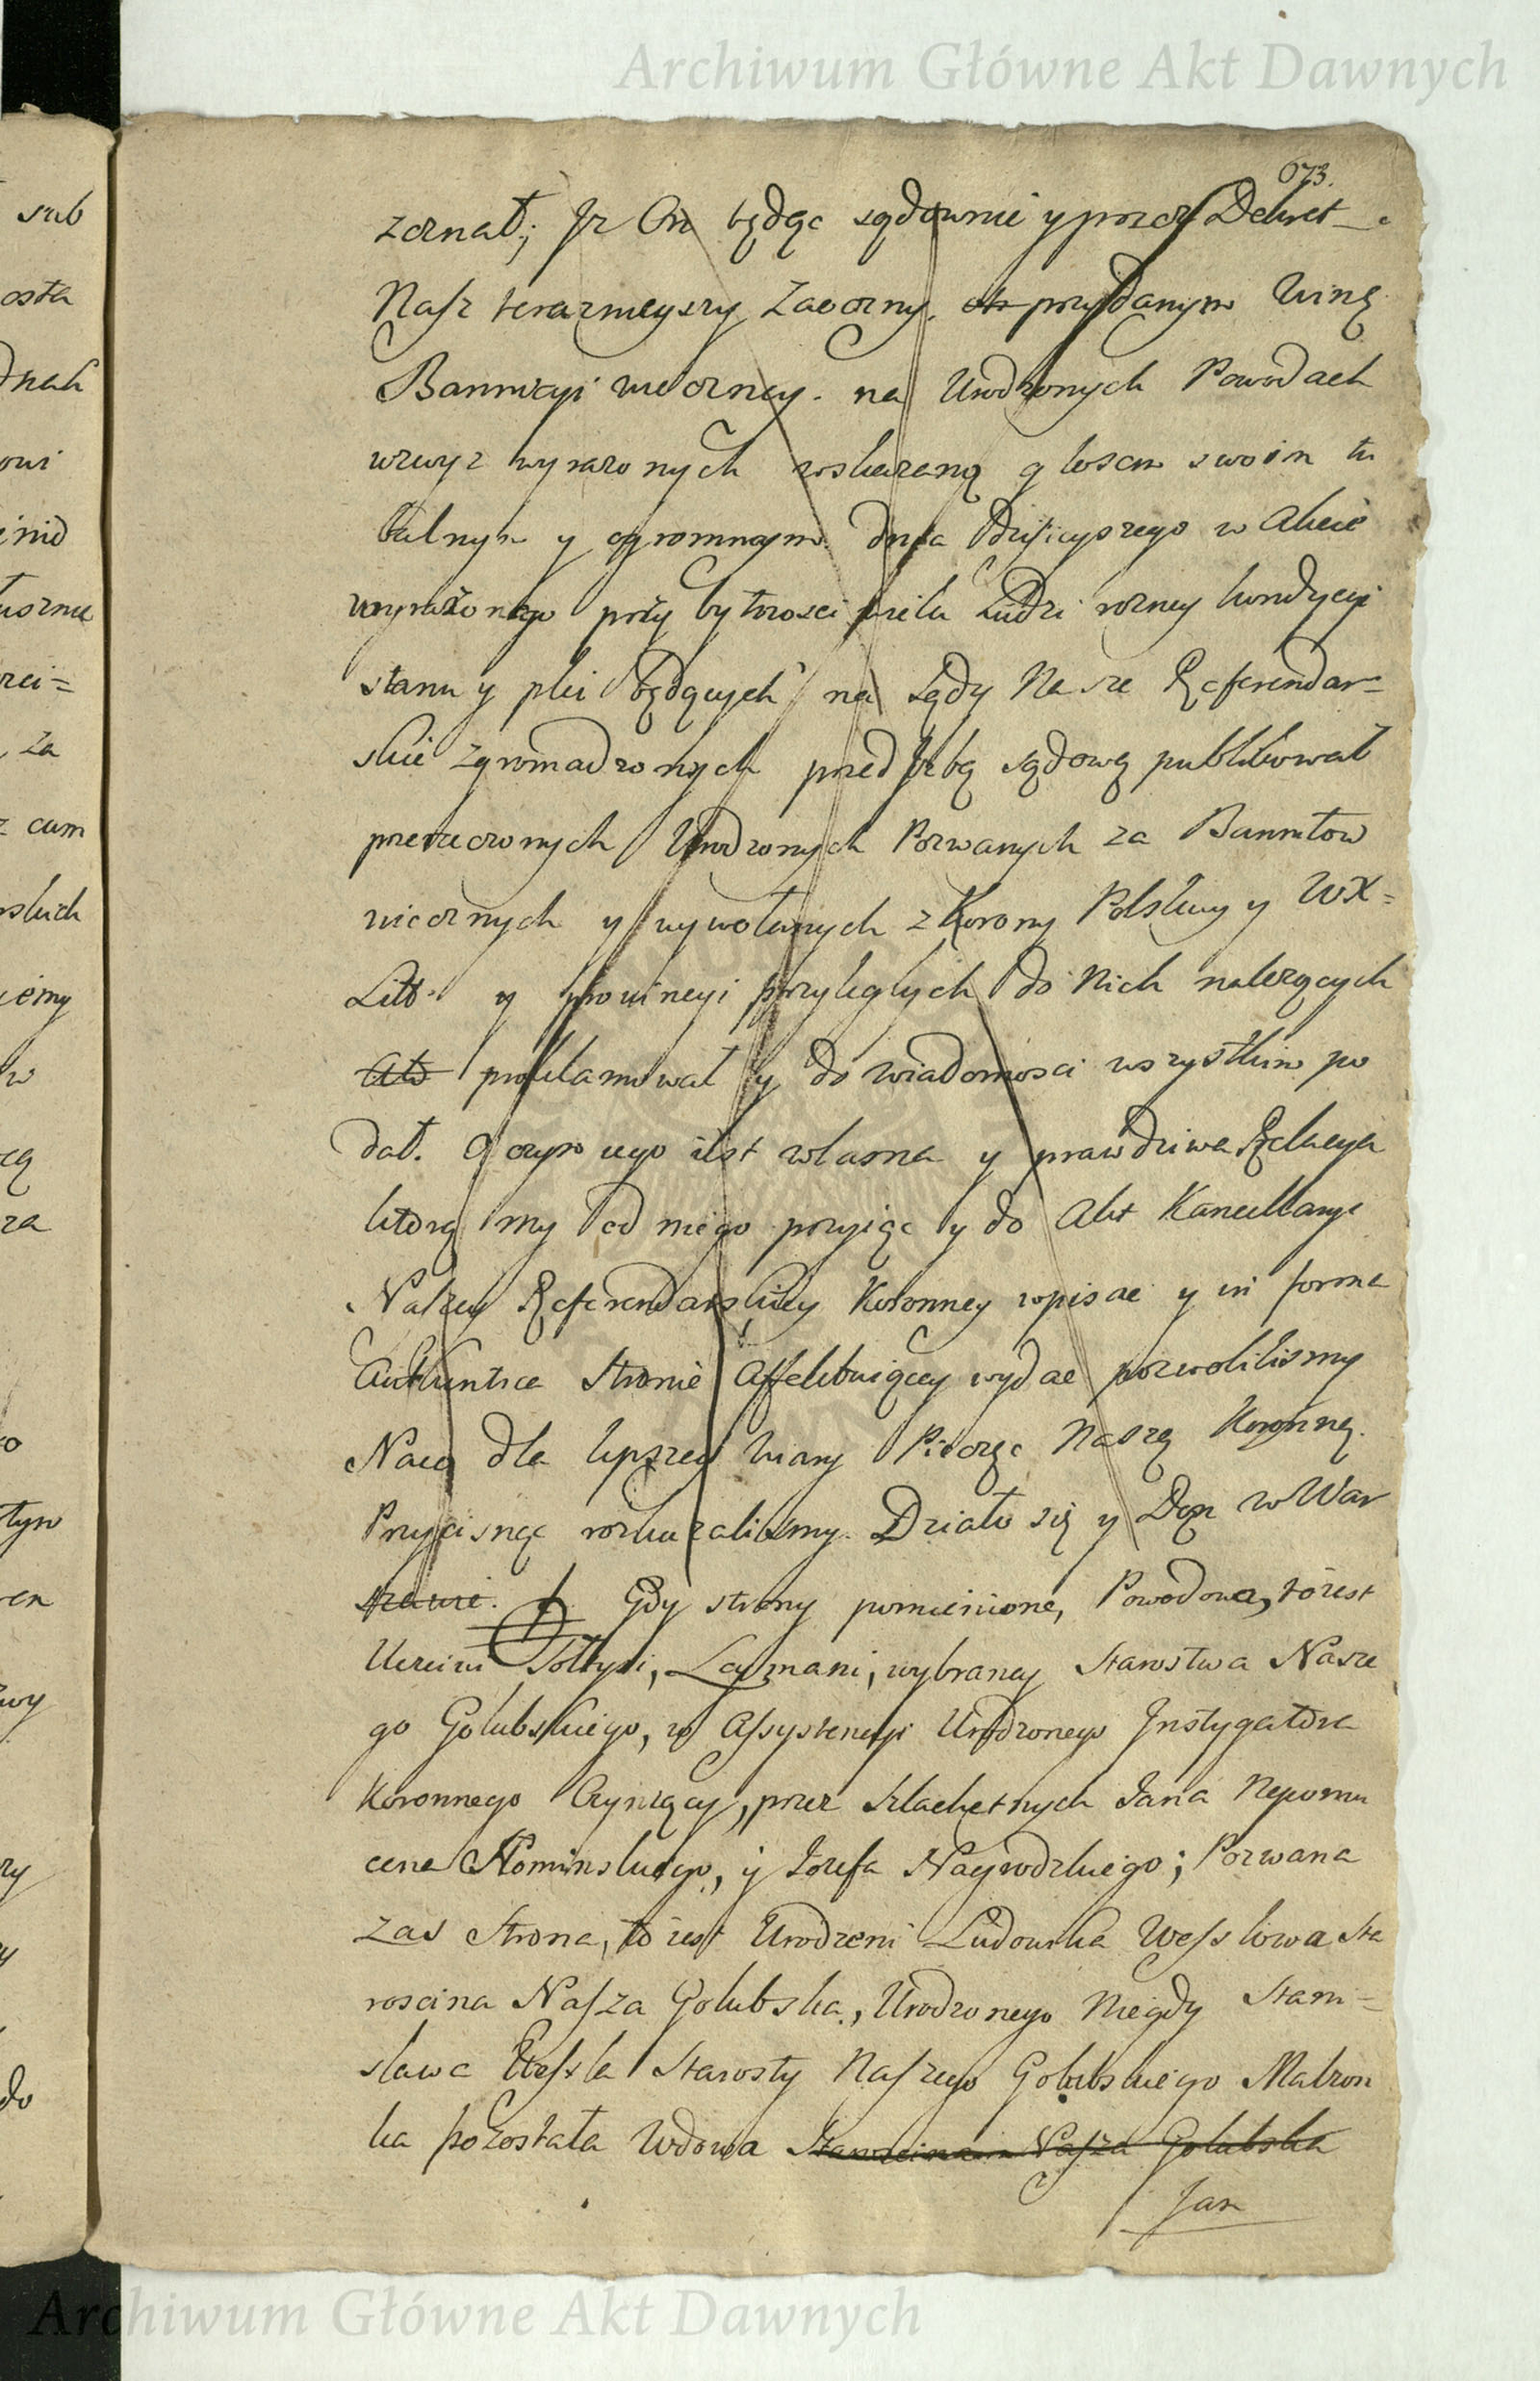 Archiwum Główne Akt Dawnych
673.
zeznał; Jz On będąc sądownie y przez Dekret
Nasz teraznieyszy Zaoczny, przydanym Winę
Bannicyi wieczney na Urodzonych Powodach
wzwyz wyrazonych wskazaną głosem swoim tu
balnym y ogromnym dnia dzisieyszego w Akcie
wyrazonego przy bytnosci wielu Ludzi rozney kondycyi
stanu y płci będących na Sądy Nasze Referendar=
skie zgromadzonych przed Jzbą sądową publikował
przerzeczonych Urodzonych Pozwanych za Bannitow
wiecznych y wywołanych z Korony Polskiey y WX=
Litt: y prowincyi przyległych do Nich nalezących
proklamował y do wiadomosci wszystkim po
dał. O czym iego iest własna y prawdziwa Relacya
ktorą my od niego przyiąć y do Akt Kancellaryi
Naszey Referendarskiey Koronney wpisac y in forma
Authentica Stronie Affektuiącey wydac pozwolilismy
Na co dla lepszey Wiary Pieczęc Naszą Koronną
Przycisnąc rozkazalismy. Działo się y Dan w War
szawie. Gdy strony pomienione, Powodowa, to iest
Uczciwi Sołtysi, Laymani, wybrancy Starostwa Nasze
go Golubskiego, w Assystencyi Urodzonego Jnstygatora
Koronnego Czyniący, przez Szlachetnych Jana Nepomu
cena Słominskiego, y Jozefa Nagrodzkiego; Pozwana
zas Strona, to iest Urodzeni Ludowika Wesslowa Sta
roscina Nasza Golubska, Urodzonego Niegdy Stani=
sława Wessla Starosty Naszego Golubskiego Małzon
ka pozostała Wdowa Staroscina Nasza Golubska
Jan
Archiwum Główne Akt Dawnych